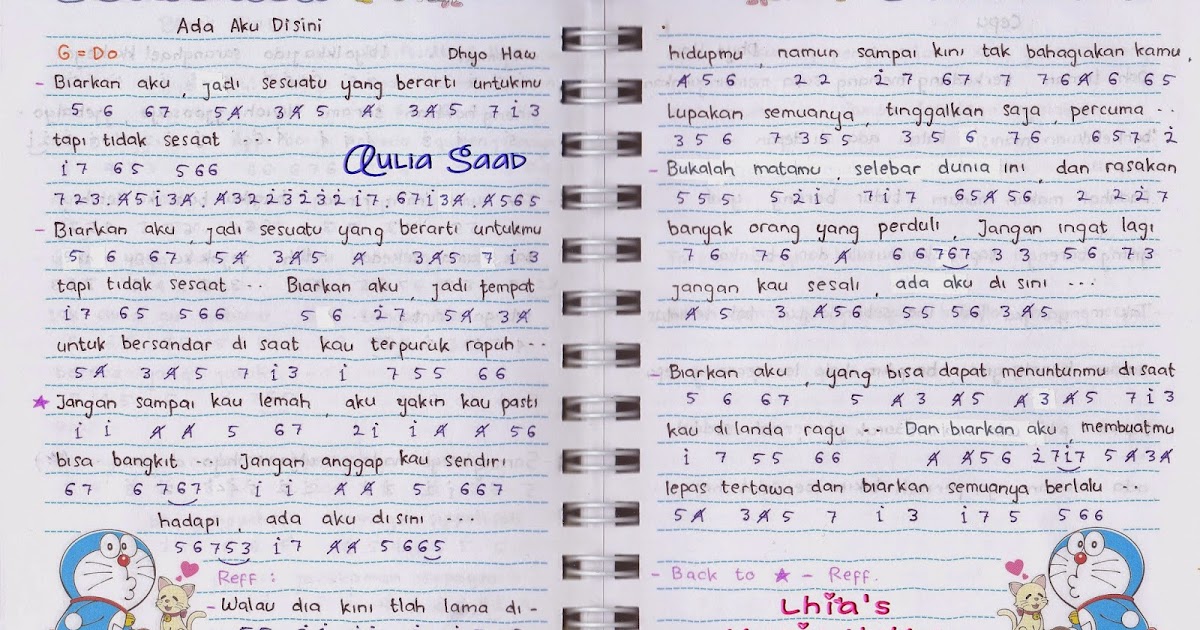 Ada Aku Disini
G = Do Dhyo Haw
- Biarkan aku , jadi sesuatu yang berarti untukmu
5 6 67 54 345 4 345 7 i 3
tapi tidak sesaat ...
i7 65 566
Qulia Saad
723.45i34.432232321̇7.67i34.4565
- Biarkan aku , jadi sesuatu yang berarti untukmu
5 6 67 54 345 4 345 7 i3
tapi tidak sesaat ... Biarkan aku , jadi tempat
i7 65 566 5 6 27 54 34
untuk bersandar di saat kau terpuruk rapuh ...
54 345 7 i3 i 755 66
★ Jangan sampai kau lemah , aku yakin kau pasti
i i 4 4 5 67 2i i4 4 56
bisa bangkit ... Jangan anggap kau sendiri
67 6767 i i 44 5 667
hadapi , ada aku disini ....
56753 i7 44 5665
Reff :
- Walau dia kini tlah lama di -
hidupmu , namun sampai kini tak bahagiakan kamu ,
456 22 i7 67 7 7644 6 65
Lupakan semuanya , tinggalkan saja , percuma ...
356 7355 356 76 657i
- Bukalah matamu , selebar dunia ini , dan rasakan
555 52i 7i7 654 56 2 227
banyak orang yang perduli , Jangan ingat lagi
76 76 4 66767 33 56 73
jangan kau sesali , ada aku di sini ....
4 5 3 456 55 56 345
- Biarkan aku , yang bisa dapat menuntunmu di saat
5 6 67 5 43 45 4345 7i3
kau dilanda ragu ... Dan biarkan aku membuatmu
i 755 66 4 456 i7i7 5434
lepas tertawa dan biarkan semuanya berlalu
54 345 7 i 3 i75 566
- Back to ★ - Reff.
Lhia's